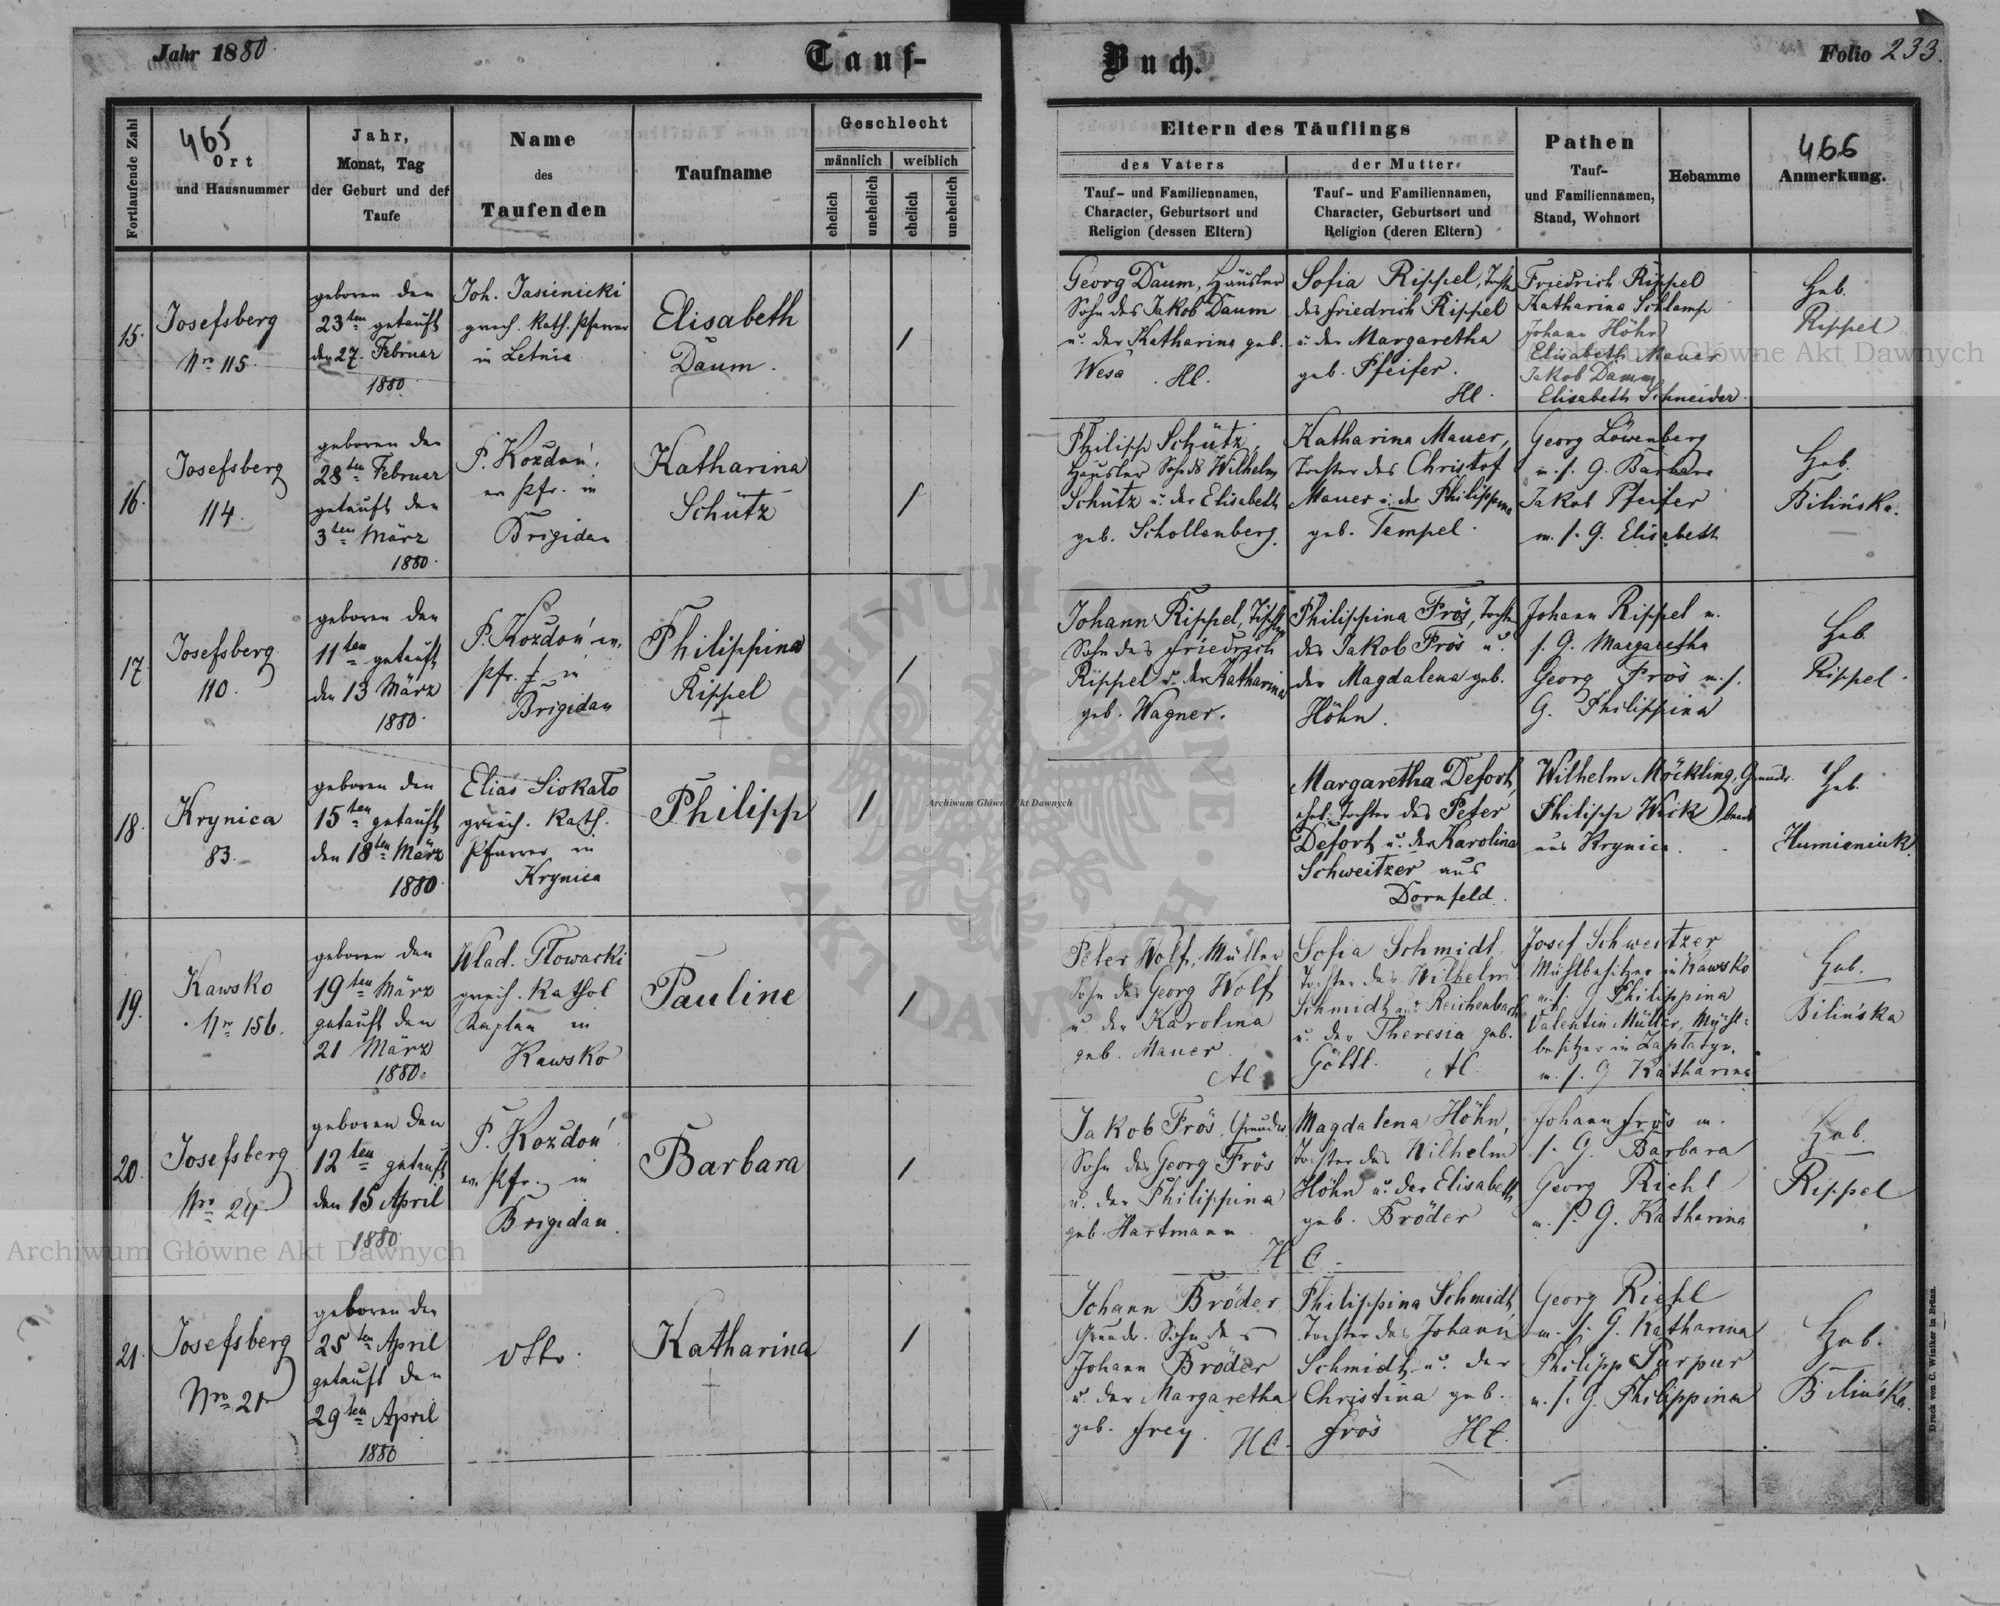 Jahr 1880
Tauf-
Buch.
Folio 233.
Fortlaufende Zahl
465
Ort
und Hausnummer
Jahr,
Monat, Tag
der Geburt und der
Taufe
Name
des
Taufenden
Taufname
Geschlecht
männlich
weiblich
ehelich
unehelich
ehelich
unehelich
Eltern des Täuflings
des Vaters
Tauf- und Familiennamen,
Character, Geburtsort und
Religion (dessen Eltern)
der Mutter
Tauf- und Familiennamen,
Character, Geburtsort und
Religion (deren Eltern)
Pathen
Tauf-
und Familiennamen,
Stand, Wohnort
Hebamme
466
Anmerkung.
15.
Josefsberg
Nro 115.
geboren den
23ten getauft
den 27. Februar
1880.
Joh. Jasienicki
griech. kath. Pfarrer
in Letnia
Elisabeth
Daum.
/
Georg Daum, Häusler
Sohn des Jakob Daum
u. der Katharina geb.
Wesa. HC.
Sofia Rippel, Tochter
des Friedrich Rippel
u. der Margaretha
geb. Pfeifer.
HC.
Friedrich Rippel
Katharina Schlamp
Johann Höhn
Elisabeth Mauer
Jakob Damm
Elisabeth Schneider.
Heb.
Rippel
16.
Josefsberg
114.
geboren den
28ten Februar
getauft den
3ten März
1880.
P. Kozdoń,
ev. Pfr. in
Brigidau
Katharina
Schütz
/
Philipp Schütz,
Häusler Sohn ds Wilhelm
Schütz u. der Elisabeth
geb. Schollenberg.
Katharina Mauer,
Tochter des Christof
Mauer u. der Philippina
geb. Tempel.
Georg Löwenberg
m. s. G. Barbara
Jakob Pfeifer
m. s. G. Elisabeth
Heb.
Bilińska.
17.
Josefsberg
110.
geboren den
11ten getauft
den 13 März
1880.
P. Kozdoń ev.
Pfr. in
Brigidau
Philippina
Rippel
/
Johann Rippel, Tischler
Sohn des Friedrich
Rippel u. der Katharina
geb. Wagner.
Philippina Frös, Tochter
des Jakob Frös u.
der Magdalena geb.
Höhn.
Johann Rippel m.
s. G. Margaretha
Georg Frös m. s.
G. Philippina
Heb.
Rippel.
18.
Krynica
83.
geboren den
15ten getauft
den 18ten März
1880.
Elias Siokało
griech. kath.
Pfarrer in
Krynica
Philipp
/
Margaretha Defort,
ehel. Tochter des Peter
Defort u. der Karolina
Schweitzer aus
Dornfeld.
Wilhelm Möckling, Grundr.
Philipp Weik
aus Krynica.
Heb.
Humieniuk.
19.
Kawsko
Nro 156.
geboren den
19ten März
getauft den
21 März
1880.
Wlad. Głowacki
griech. Kathol
Kaplan in
Kawsko
Pauline
/
Peter Wolf, Müller
Sohn des Georg Wolf
u. der Karolina
geb. Mauer.
AC.
Sofia Schmidt,
Tochter des Wilhelm
Schmidt aus Reichenbach
u. der Theresia geb.
Göttl. AC.
Josef Schweitzer
Mühlbesitzer in Kawsko
m. s. G. Philippina
Valentin Müller, Mühl-
besitzer in Zapłatyn,
m. s. G Katharina
Heb.
Bilińska
20.
Josefsberg
Nro 24
geboren den
12ten getauft
den 15 April
1880.
P. Kozdoń
ev. Pfr. in
Brigidau.
Barbara
/
Jakob Frös, Grundr.
Sohn des Georg Frös
u. der Philippina
geb. Hartmann.
HC.
Magdalena Höhn,
Tochter des Wilhelm
Höhn u. der Elisabeth
geb. Bröder
Johann Frös m.
s. G. Barbara
Georg Riehl
m. s. G. Katharina
Heb.
Rippel
21.
Josefsberg
Nro 21
geboren den
25ten April
getauft den
29ten April
1880
dtto.
Katharina
/
Johann Bröder
Grundr. Sohn des
Johann Bröder
u. der Margaretha
geb. Frey. HC.
Philippina Schmidt,
Tochter des Johann
Schmidt u. der
Christina geb.
Frös HC.
Georg Riehl
m. s. G. Katharina
Philipp Purpur
m. s. G. Philippina
Heb.
Bilińska.
Druck von C. Winiker in Brünn.
Archiwum Główne Akt Dawnych
Archiwum Główne Akt Dawnych
Archiwum Główne Akt Dawnych